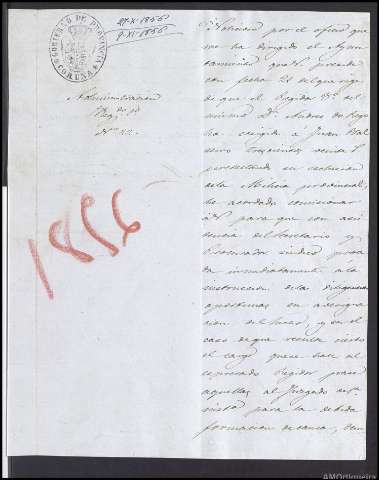 GOBIERNO DE PROVINCIA
CORUÑA
27-XI-1856
8-XI-1856
Administracion
Neg.do
1856
Noticioso por el oficio que
me ha dirigido el Ayun-
tamiento que V. preside
con fecha 21 del que rige
de que el Regidor del
mismo D. Andres de
exigido á Juan
Trescientos
pertenecido en
de la Milicia provincial,
he acordado comisionar
á V. para que con asis-
tencia del Secretario y
Procurador sindico proce
da inmediatamente á la
instruccion de las diligencias
oportunas en averigua
cion del hecho, y en el
caso de que resulte cierto
el cargo que se hace al
espresado Regidor pase
aquellas al Juzgado de 1ª
instª para la debida
formacion de causa, dan
AMOrtigueira